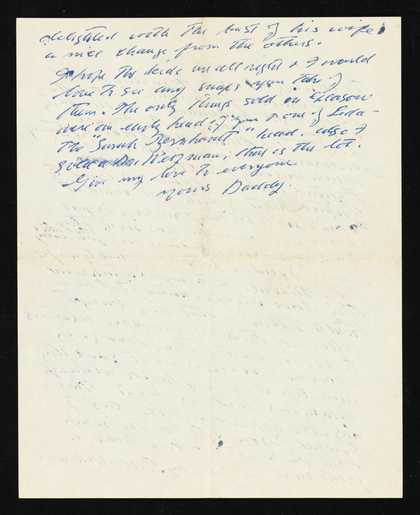 delighted with the bust of his wife,
a nice change from the others.
I hope the kids are all right & I would
love to see any snaps you take of
them. The only things sold in
were an early head of you & one of
The "Sarah Bernhardt" head. also I
sold a man, that is the lot.
Give my love to everyone
yours Daddy.